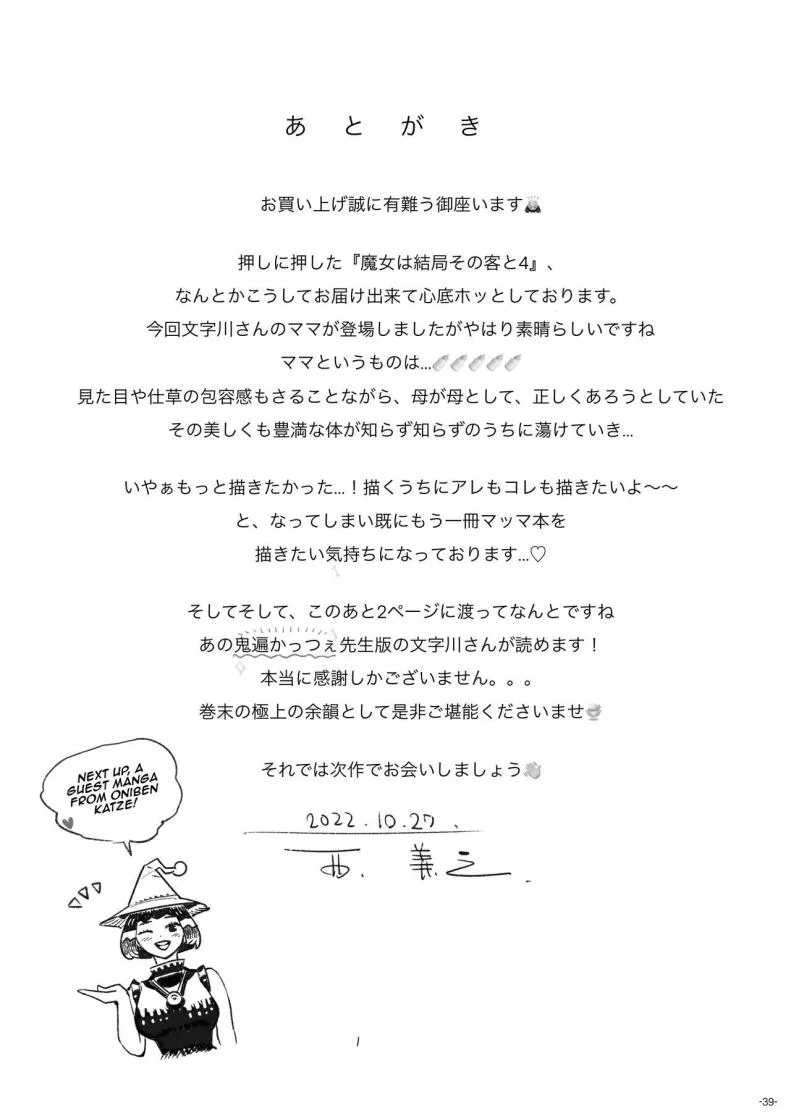 あとがき
お買い上げ誠に有難う御座います🙇
押しに押した『魔女は結局その客と4』、
なんとかこうしてお届け出来て心底ホッとしております。
今回文字川さんのママが登場しましたがやはり素晴らしいですね
ママというものは...🍼🍼🍼🍼🍼
見た目や仕草の包容感もさることながら、母が母として、正しくあろうとしていた
その美しくも豊満な体が知らず知らずのうちに蕩けていき...
いやぁもっと描きたかった...！描くうちにアレもコレも描きたいよ〜〜
と、なってしまい既にもう一冊マッマ本を
描きたい気持ちになっております...♡
そしてそして、このあと2ページに渡ってなんとですね
あの鬼遍かっつぇ先生版の文字川さんが読めます！
本当に感謝しかございません。。。
巻末の極上の余韻として是非ご堪能くださいませ🍧
それでは次作でお会いしましょう👋
NEXT UP, A
GUEST MANGA
FROM ONIBEN
KATZE!
2022.10.27.
西 義之
-39-